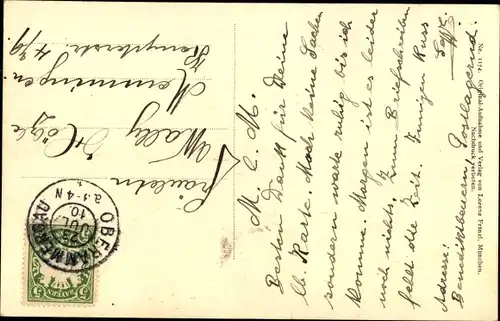 Fräulein
Wally Hözle
Memmingen.
Kempterstr. 4 3/9.
OBERAMMERGAU
22 JUL. 10
N. 3-4 N
5 BAYERN 5
M. l. M.
Besten Dank für Deine
lb. Karte. Mach keine Sachen
sondern warte ruhig bis ich
komme. Morgen ist es leider
noch nichts. Zum Briefschreiben
fehlt die Zeit. Innigen Kuss
Adresse:
Benediktbeuern, Postlagernd.
Nr. 1174. Original-Aufnahme und Verlag von Lorenz Fränzl, München.
Nachdruck verboten.